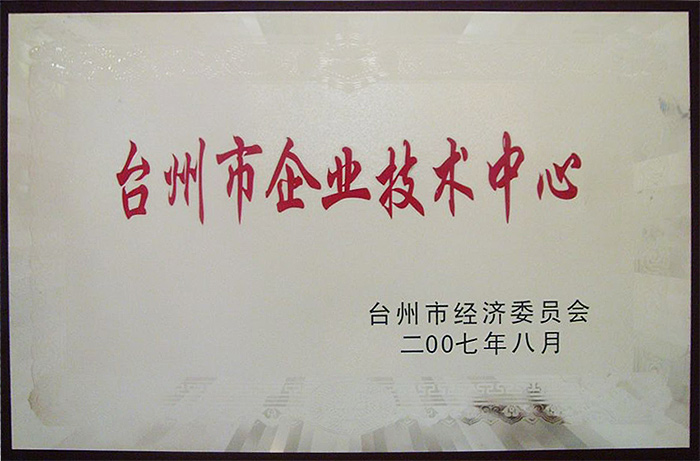 台州市企业技术中心
台州市经济委员会
二00七年八月